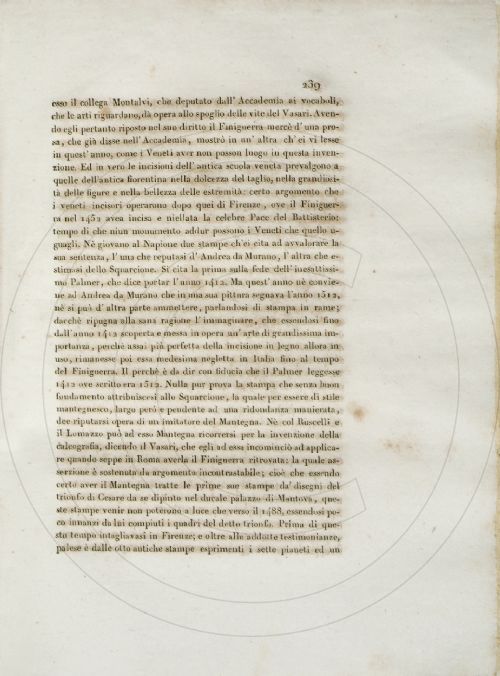 239
esso il collega Montalvi, che deputato dall' Accademia ai vocaboli,
che le arti riguardano, dà opera allo spoglio delle vite del Vasari. Aven-
do egli pertanto riposto nel suo diritto il Finiguerra mercè d' una pro-
sa, che già disse nell' Accademia, mostrò in un' altra ch' ei vi lesse
in quest' anno, come i Veneti aver non posson luogo in questa inven-
zione. Ed in vero le incisioni dell' antica scuola veneta prevalgono a
quelle dell' antica fiorentina nella dolcezza del taglio, nella grandiosi-
tà delle figure e nella bellezza delle estremità: certo argomento che
i veneti incisori operarono dopo quei di Firenze, ove il Finiguer-
ra nel 1452 avea incisa e niellata la celebre Pace del Battisterio:
tempo di che niun monumento addur possono i Veneti che quello u-
guagli. Nè giovano al Napione due stampe ch' ei cita ad avvalorare la
sua sentenza, l' una che reputasi d' Andrea da Murano, l' altra che e-
stimasi dello Squarcione. Si cita la prima sulla fede dell' inesattissi-
mo Palmer, che dice portar l' anno 1412. Ma quest' anno nè convie-
ne ad Andrea da Murano che in una sua pittura segnava l' anno 1512,
nè si può d' altra parte ammettere, parlandosi di stampa in rame;
dacchè ripugna alla sana ragione l' immaginare, che essendosi fino
dall' anno 1412 scoperta e messa in opera un' arte di grandissima im-
portanza, perchè assai più perfetta della incisione in legno allora in
uso, rimanesse poi essa medesima negletta in Italia fino al tempo
del Finiguerra. Il perchè è da dir con fiducia che il Palmer leggesse
1412 ove scritto era 1512. Nulla pur prova la stampa che senza buon
fondamento attribuiscesi allo Squarcione, la quale per essere di stile
mantegnesco, largo però e pendente ad una ridondanza manierata,
dee riputarsi opera di un imitatore del Mantegna. Nè col Ruscelli e
il Lomazzo può ad esso Mantegna ricorrersi per la invenzione della
calcografia, dicendo il Vasari, che egli ad essa incominciò ad applica-
re quando seppe in Roma averla il Finiguerra ritrovata: la quale as-
serzione è sostenuta da argomento incontrastabile; cioè che essendo
certo aver il Mantegna tratte le prime sue stampe da' disegni del
trionfo di Cesare da se dipinto nel ducale palazzo di Mantova, que-
ste stampe venir non poterono a luce che verso il 1488, essendosi po-
co innanzi da lui compiuti i quadri del detto trionfo. Prima di que-
sto tempo intagliavasi in Firenze; e oltre alle addotte testimonianze,
palese è dalle otto antiche stampe esprimenti i sette pianeti ed un